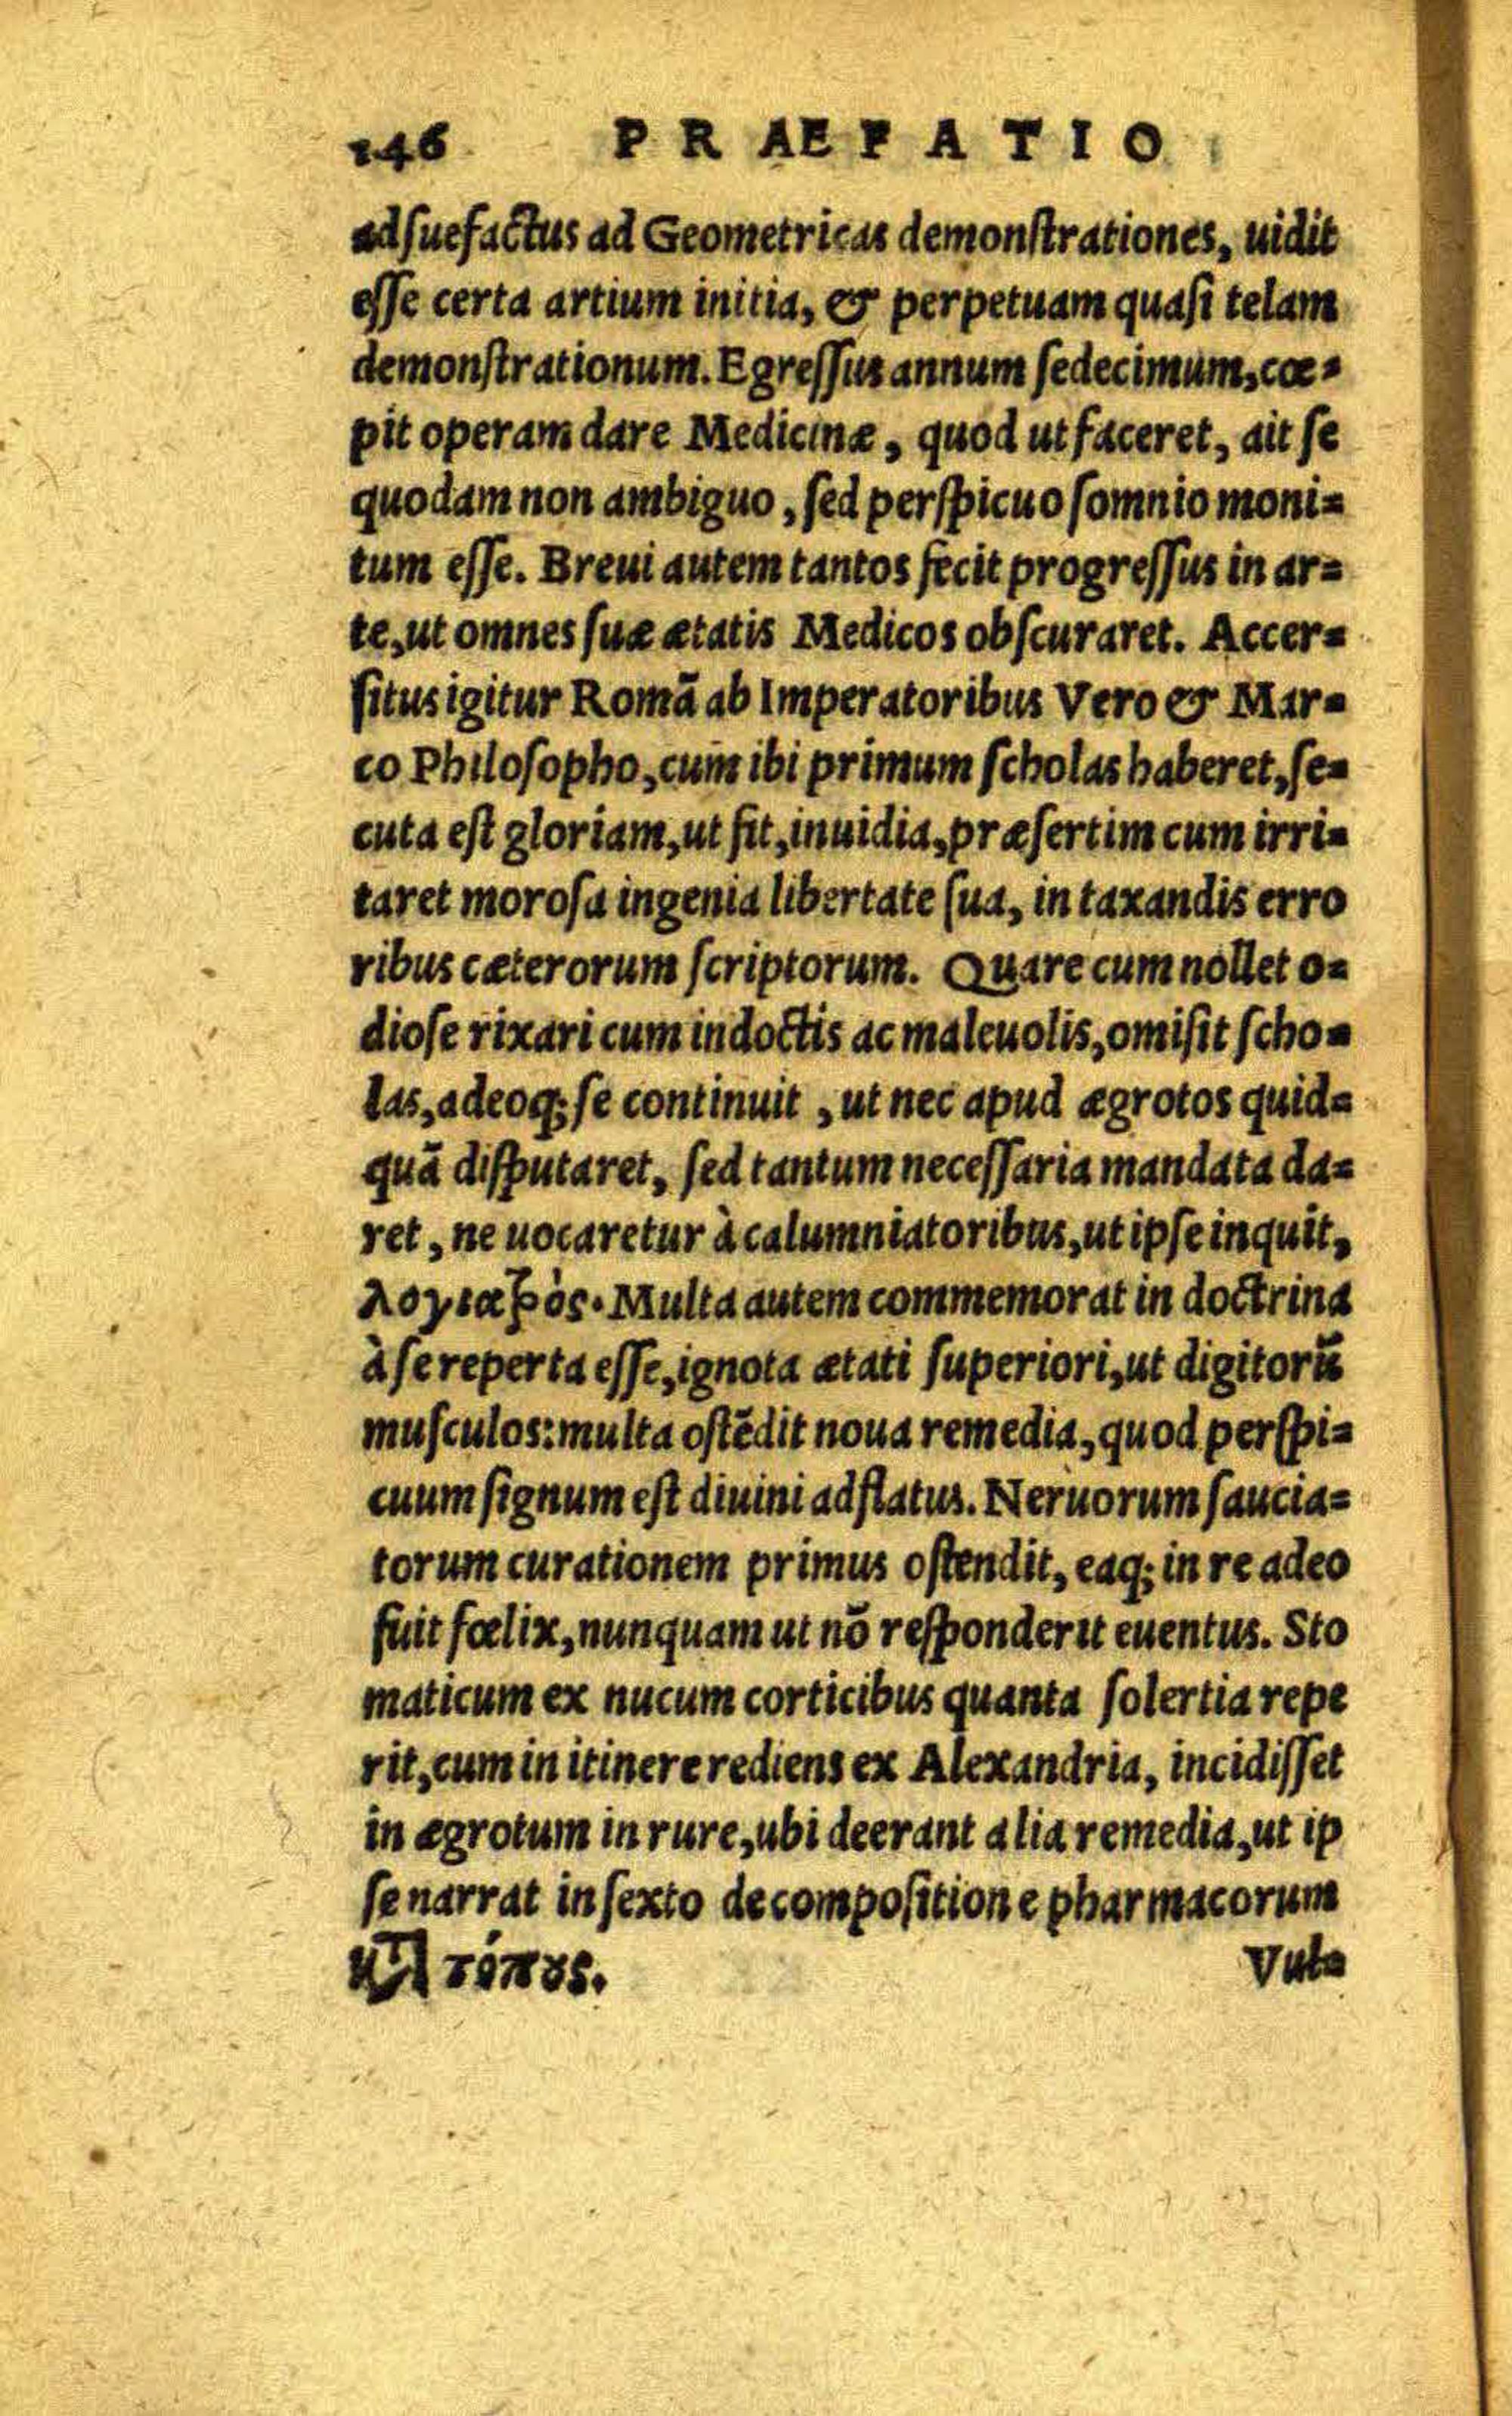 146 PRAEFATIO
adsuefactus ad Geometricas demonstrationes, uidit
esse certa artium initia, & perpetuam quasi telam
demonstrationum. Egressus annum sedecimum, cœ-
pit operam dare Medicinæ, quod ut faceret, ait se
quodam non ambiguo, sed perspicuo somnio moni-
tum esse. Breui autem tantos fecit progressus in ar-
te, ut omnes suæ ætatis Medicos obscuraret. Accer-
situs igitur Romã ab Imperatoribus Vero & Mar-
co Philosopho, cum ibi primum scholas haberet, se-
cuta est gloriam, ut fit, inuidia, præsertim cum irri-
taret morosa ingenia libertate sua, in taxandis erro
ribus cæterorum scriptorum. Quare cum nollet o-
diose rixari cum indoctis ac maleuolis, omisit scho-
las, adeoq; se continuit, ut nec apud ægrotos quid-
quã disputaret, sed tantum necessaria mandata da-
ret, ne uocaretur à calumniatoribus, ut ipse inquit,
λογιατρὸς. Multa autem commemorat in doctrina
à se reperta esse, ignota ætati superiori, ut digitorũ
musculos: multa ostẽdit noua remedia, quod perspi-
cuum signum est diuini adflatus. Neruorum saucia-
torum curationem primus ostendit, eaq; in re adeo
fuit fœlix, nunquam ut nõ responderit euentus. Sto
maticum ex nucum corticibus quanta solertia repe
rit, cum in itinere rediens ex Alexandria, incidisset
in ægrotum in rure, ubi deerant alia remedia, ut ip
se narrat in sexto de compositione pharmacorum
κατὰ τόπους. Vul-